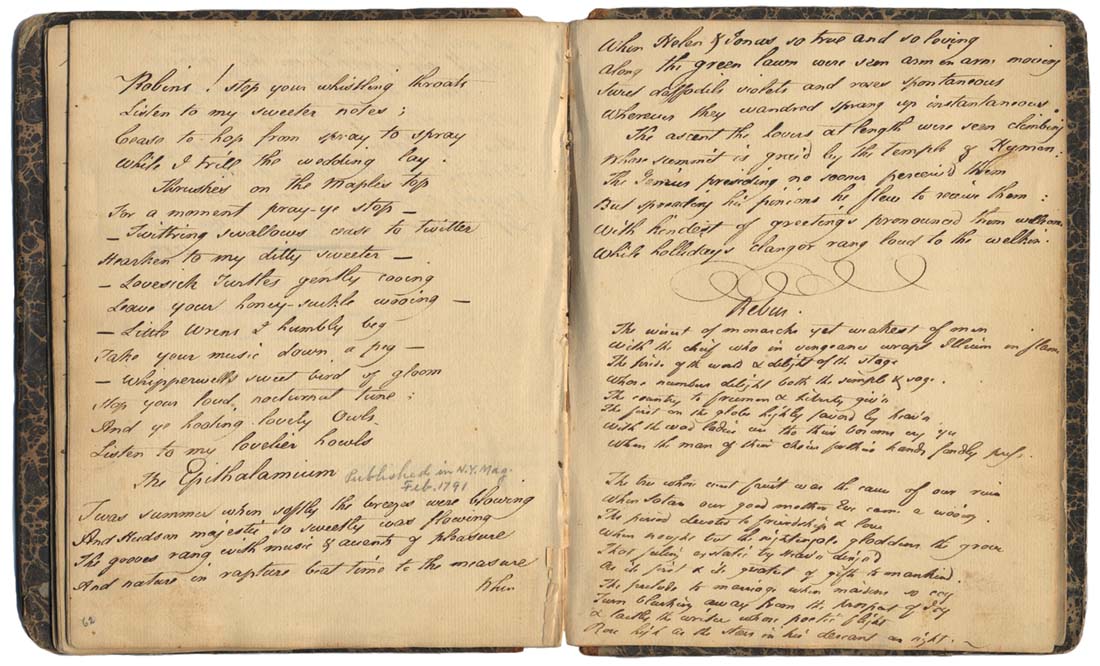 Robins ! stop your whistling throats
Listen to my sweeter notes ;
Cease to hop from spray to spray
While I trill the wedding lay .
Thrushes on the Maples top
For a moment pray-ye stop —
— Twittring swallows cease to twitter
Hearken to my ditty sweeter —
— Lovesick Turtles gently cooing
Leave your honey-suckle wooing —
— Little Wrens I humbly beg
Take your music down a peg —
— Whipperwells sweet bird of gloom
Stop your loud nocturnal tune :
And ye hooting lovely Owls
Listen to my lovelier howls
The Epithalamium Published in N.Y. Mag.
Feb. 1791
Twas summer when softly the breezes were blowing
And Hudson majestic so sweetly was flowing
The groves rang with music & accents of pleasure
And nature in rapture beat time to the measure
When
62
When Helen & Jonas so true and so loving
Along the green lawn were seen arm in arm moving
Sweet daffodils violets and roses spontaneous
Wherever they wandred sprang up instantaneous .
The ascent the lovers at length were seen climbing
Whose summit is grac'd by the temple of Hymen :
The Genius presiding no sooner perceiv'd them
But spreading his pinions he flew to receive them :
With kindest of greetings pronounced them welkom
While hollidays clangor rang loud to the welkin .
Rebus .
The wisest of monarchs yet weakest of men
With the chief who in vengeance wrapt Illium in flam
The pride of the world & delight of the stage
Whose numbers delight both the simple & sage .
The country to freemen & liberty giv'n
The first on the globe highly favord by heav'n
With the ladies in their bosoms
When the man of their choice their hands fondly
The tree whose curst fruit was the cause of our ruin
When Satan our good mother Eve came a wooing .
The period devoted to friendship & love
When nought but the nightingale gladdens the grove
That extatic by heav'n
As its first & its greatest of gifts to mankind .
The prelude to marriage when maidens so coy
Turn blushing away from the prospect of Joy
& lastly the writer whose poetic flight
Rose high as the stars in his descant on night . —